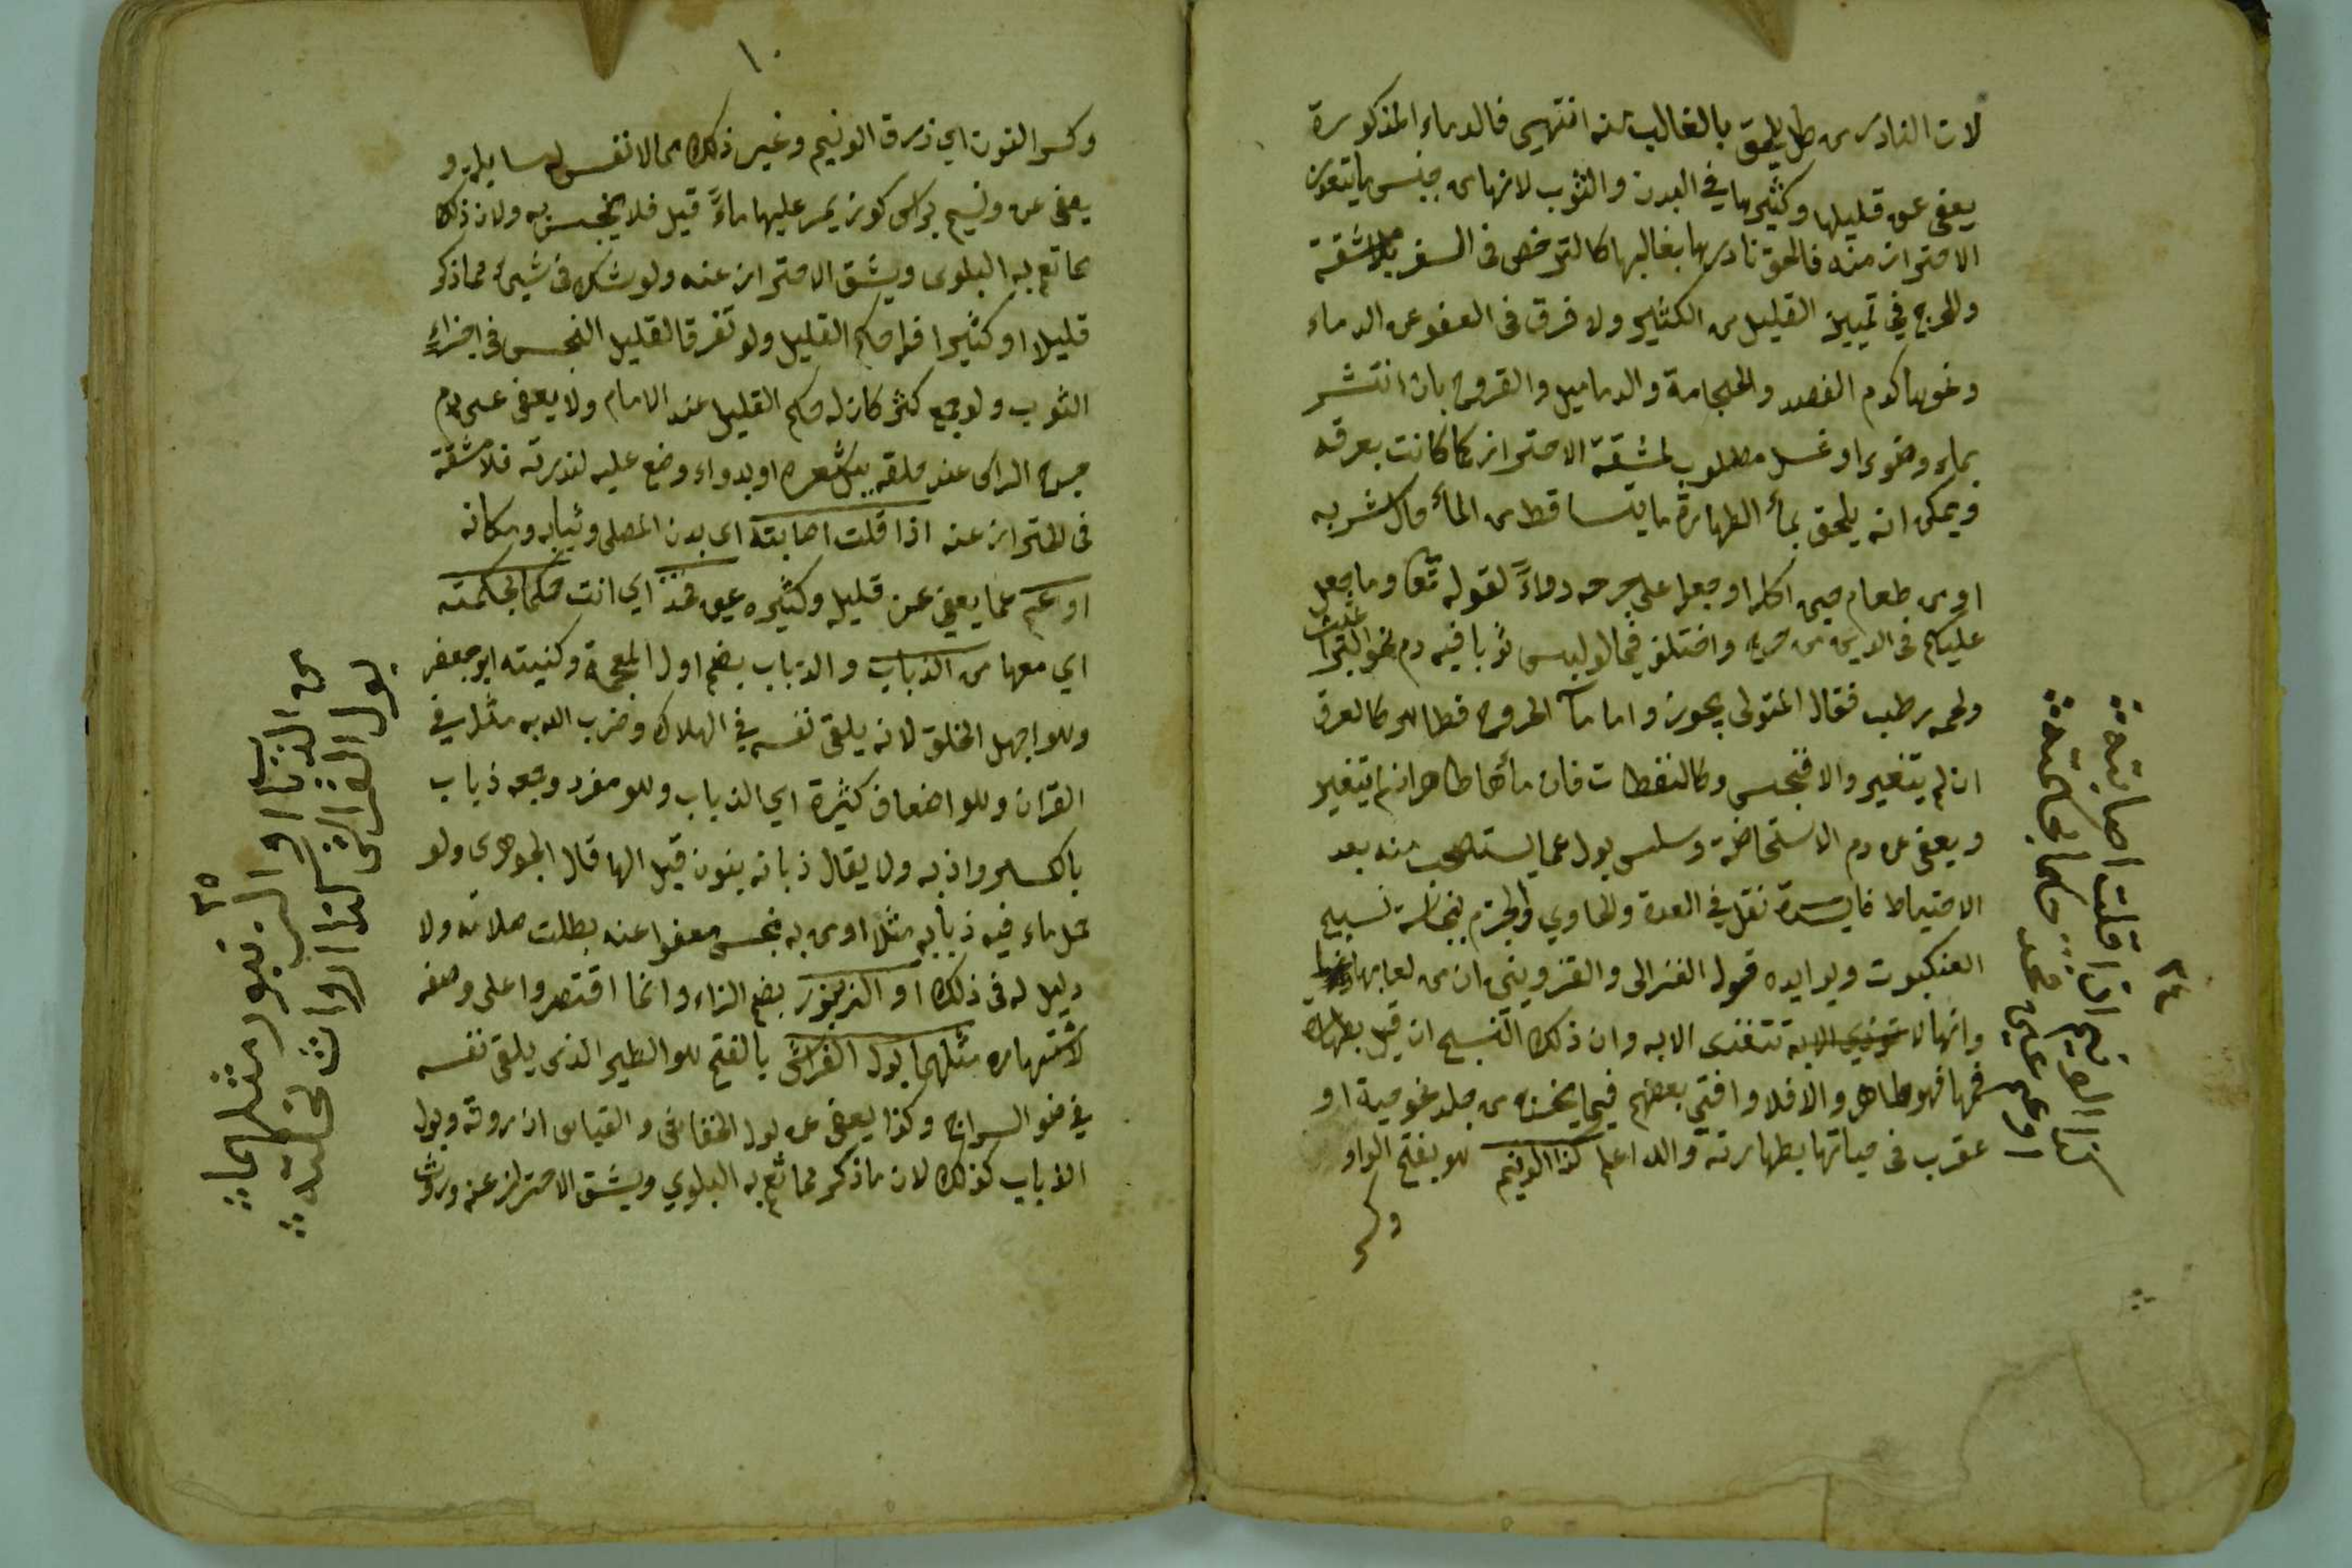 لان النادر من كل يلحق بالغالب منه انتهى فالدماء المذكورة
يعفى عن قليلها وكثيرها في البدن والثوب لانها من جنس ما يتعذر
الاحتراز منه فالحق نادرها بغالبها كالترخص في السفر بلا مشقة
والحرج في تمييز القليل من الكثير ولا فرق فى العفو عن الدماء
ونحوها كدم الفصد والحجامة والدماميل والقروح بان انتشر
بماء وضوء او غسل مطلوب لمشقة الاحتراز كما كانت بعرقه
ويمكن انه يلحق بماء الطهارة ما يتساقط من الماء حال شربه
او من طعام حين اكله او جعله على جرحه دواءً لقوله تعا وما جعل
عليكم فى الدين من حرج واختلف فيما لو لبس ثوبا فيه دم نحو البراغيث
ولحمه رطب فقال المتولى يجوز واما ماء الجروح فطاهر كالعرق
ان لم يتغير والا فنجس وكالنفطات فان ماءها طاهر ان لم يتغير
ويعفى عن دم الاستحاضة وسلس بول عما يستصحب منه بعد
الاحتياط فايدة نقل في العدة والحاوي والجزم بنجاسة نسيج
العنكبوت ويؤيده قول الغزالى والقزوينى ان من لعابها
وانها لا تتغذى الا به وان ذلك النسج ان قيل بطهارة
فمها فهو طاهر والا فلا وافتى بعضهم فيما يخرج من جلد نحو حية او
عقرب فى حياتها بطهارته والله اعلم كذا الونيم هو بفتح الواو
وكسر
٣٤
كذا الونيم اذا قلت اصابته
او عم عن محمد حكما بحكمته
١٠
وكسر النون اي ذرق الونيم وغير ذلك مما لا نفس له سايله و
يعفى عن ونيم براس كوز يمر عليها ماءً قيل فلا ينجس به ولان ذلك
مما تعم به البلوى ويشق الاحتراز عنه ولو شك فى شيء مما ذكر
قليلا او كثيرا فله حكم القليل ولو تفرق القليل النجس في اجزاءِ
الثوب ولو جمع كثر كان له حكم القليل عند الامام ولا يعفى عن دم
جرح الراس عند حلقه ببل شعره او بدواء وضع عليه لندرته فلا مشقة
فى الاحتراز عنه اذا قلت اصابته اى بدن المصلى وثيابه ومكانه
او عم عما يعفى عن قليله وكثيره عن فخذ اي انت حكما بحكمته
اي معها من الذباب والذباب بضم اول المعجمة وكنيته ابو جعفر
وهو اجهل الخلق لانه يلقى نفسه في الهلاك وضرب الله به مثلا في
القران وهو اصناف كثيرة اي الذباب وهو مفرد وجمعه ذباب
بالكسر واذبه ولا يقال ذبانه بنون قبل الها قال الجوهري ولو
حمل ماء فيه ذبابه مثلا او من به نجس معفوا عنه بطلت صلاته ولا
دليل له فى ذلك او الزنبور بضم الزاء وانما اقتصروا على وصفه
لاشتهاره مثلهما بول الفراش بالفتح هو الطير الذى يلقى نفسه
في ضو السراج وكذا يعفى عن بول الخفاش والقياس ان روثه وبول
الذباب كذلك لان ما ذكر مما تعم به البلوي ويشق الاحتراز عنه وروث
٣٥
من الذباب او الزنبور مثلهما
بول الفراش كذا ارواث نحلته